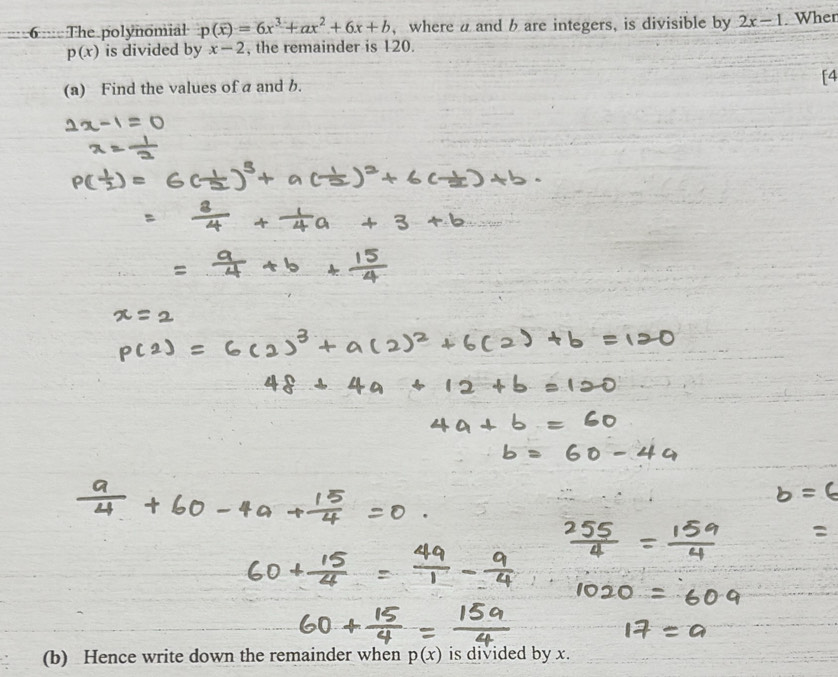 6 The polynomial p(x) = 6x³ + ax² + 6x + b, where a and b are integers, is divisible by 2x − 1. When
p(x) is divided by x − 2, the remainder is 120.
(a) Find the values of a and b.
[4
2x - 1 = 0
x = 1/2
P(1/2) = 6(1/2)³ + a(1/2)² + 6(1/2) + b.
= 3/4 + 1/4 a + 3 + b
= a/4 + b + 15/4
x = 2
P(2) = 6(2)³ + a(2)² + 6(2) + b = 120
48 + 4a + 12 + b = 120
4a + b = 60
b = 60 - 4a
a/4 + 60 - 4a + 15/4 = 0.
60 + 15/4 = 4a/1 - a/4
60 + 15/4 = 15a/4
255/4 = 15a/4
1020 = 60a
17 = a
b = 6
=
(b) Hence write down the remainder when p(x) is divided by x.